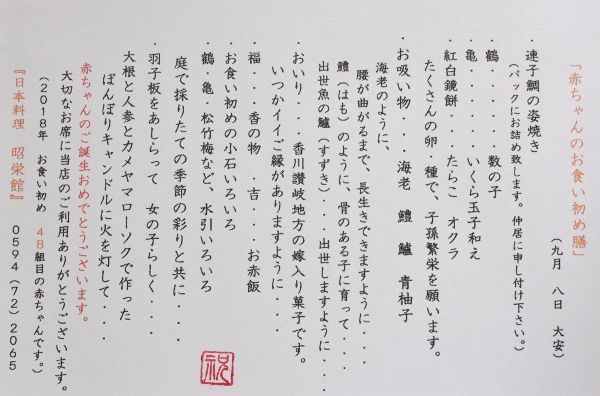 「赤ちゃんのお食い初め膳」
(九月 八日 大安)
・連子鯛の姿焼き
(パックにお詰め致します。仲居に申し付け下さい。)
・鶴・・・・・数の子
・亀・・・・・いくら玉子和え
・紅白鏡餅・・・・たらこ オクラ
たくさんの卵・種で、子孫繁栄を願います。
・お吸い物・・・・海老 鱧 鱸 青柚子
海老のように、
腰が曲がるまで、長生きできますように・・・・
鱧(はも)のように、骨のある子に育って・・・・
出世魚の鱸(すずき)・・・出世しますように・・・
・おいり・・・香川讃岐地方の嫁入り菓子です。
いつかイイご縁がありますように・・・・
・福・・・・香の物 ・吉・・・・お赤飯
・お食い初めの小石いろいろ
・鶴・亀・松竹梅など、水引いろいろ
庭で採りたての季節の彩りと共に・・・
・羽子板をあしらって 女の子らしく・・・
大根と人参とカメヤマローソクで作った
ぼんぼりキャンドルに火を灯して・・・・
赤ちゃんのご誕生おめでとうございます。
大切なお席に当店のご利用ありがとうございます。
(2018年 お食い初め 48組目の赤ちゃんです。)
『日本料理 昭栄館』 0594(72)2065
祝